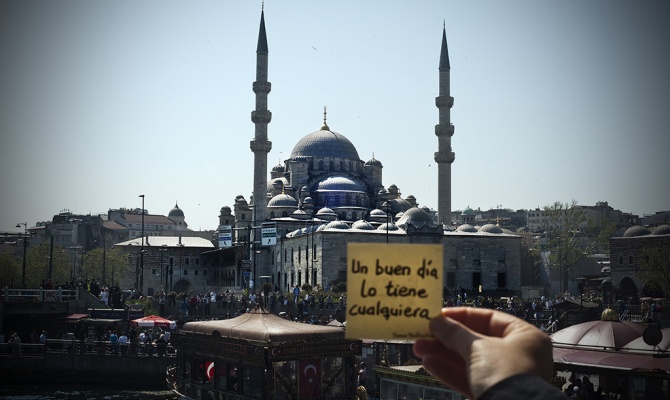 Un buen día
lo tiene
cualquiera